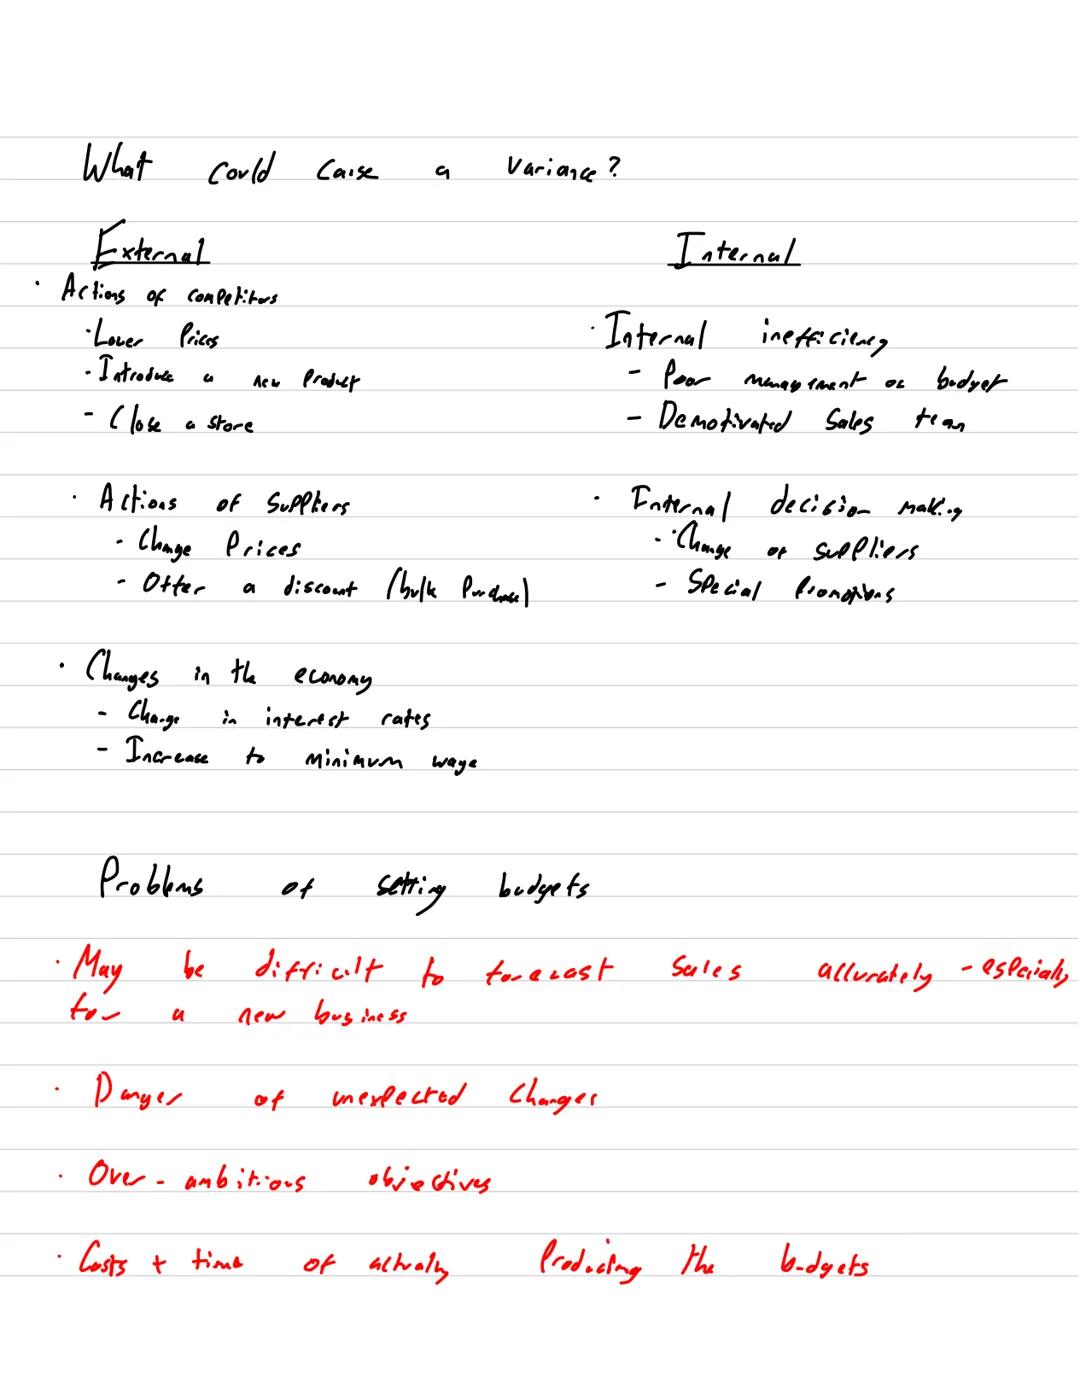 What could cause a variance?
External
· Actions of competitors
· Lower Prices
· Introduce a new Product
- Close a store
· Actions of Suppliers
- Change Prices
- Offer a discount (bulk Purchase)
· Changes in the economy
- Change in interest rates
- Increase to minimum wage
Internal
· Internal inefficiency
- Poor management of budget
- Demotivated Sales team
· Internal decision making
- Change of suppliers
- Special Promotions
Problems of setting budgets
· May be difficult to forecast sales accurately - especially
for a new business
· Danger of unexpected changes
· Over-ambitious objectives
· Costs + time of actually Producing the budgets